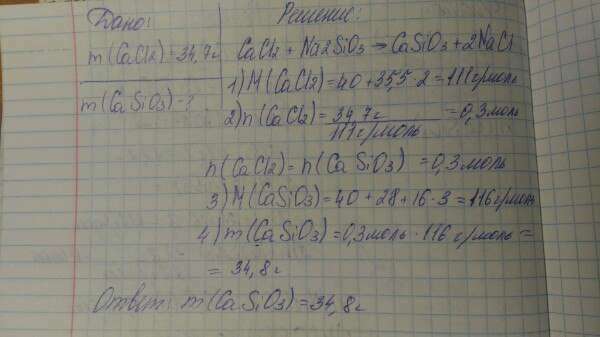 Дано:
m(CaCl2)=34,7г
m(CaSiO3)-?
Решение:
CaCl2 + Na2SiO3 → CaSiO3 + 2NaCl
1) M(CaCl2) = 40 + 35,5 · 2 = 111 г/моль
2) n(CaCl2) = 34,7г / 111 г/моль = 0,3 моль
n(CaCl2) = n(CaSiO3) = 0,3 моль
3) M(CaSiO3) = 40 + 28 + 16 · 3 = 116 г/моль
4) m(CaSiO3) = 0,3 моль · 116 г/моль =
= 34,8 г
Ответ: m(CaSiO3) = 34,8 г